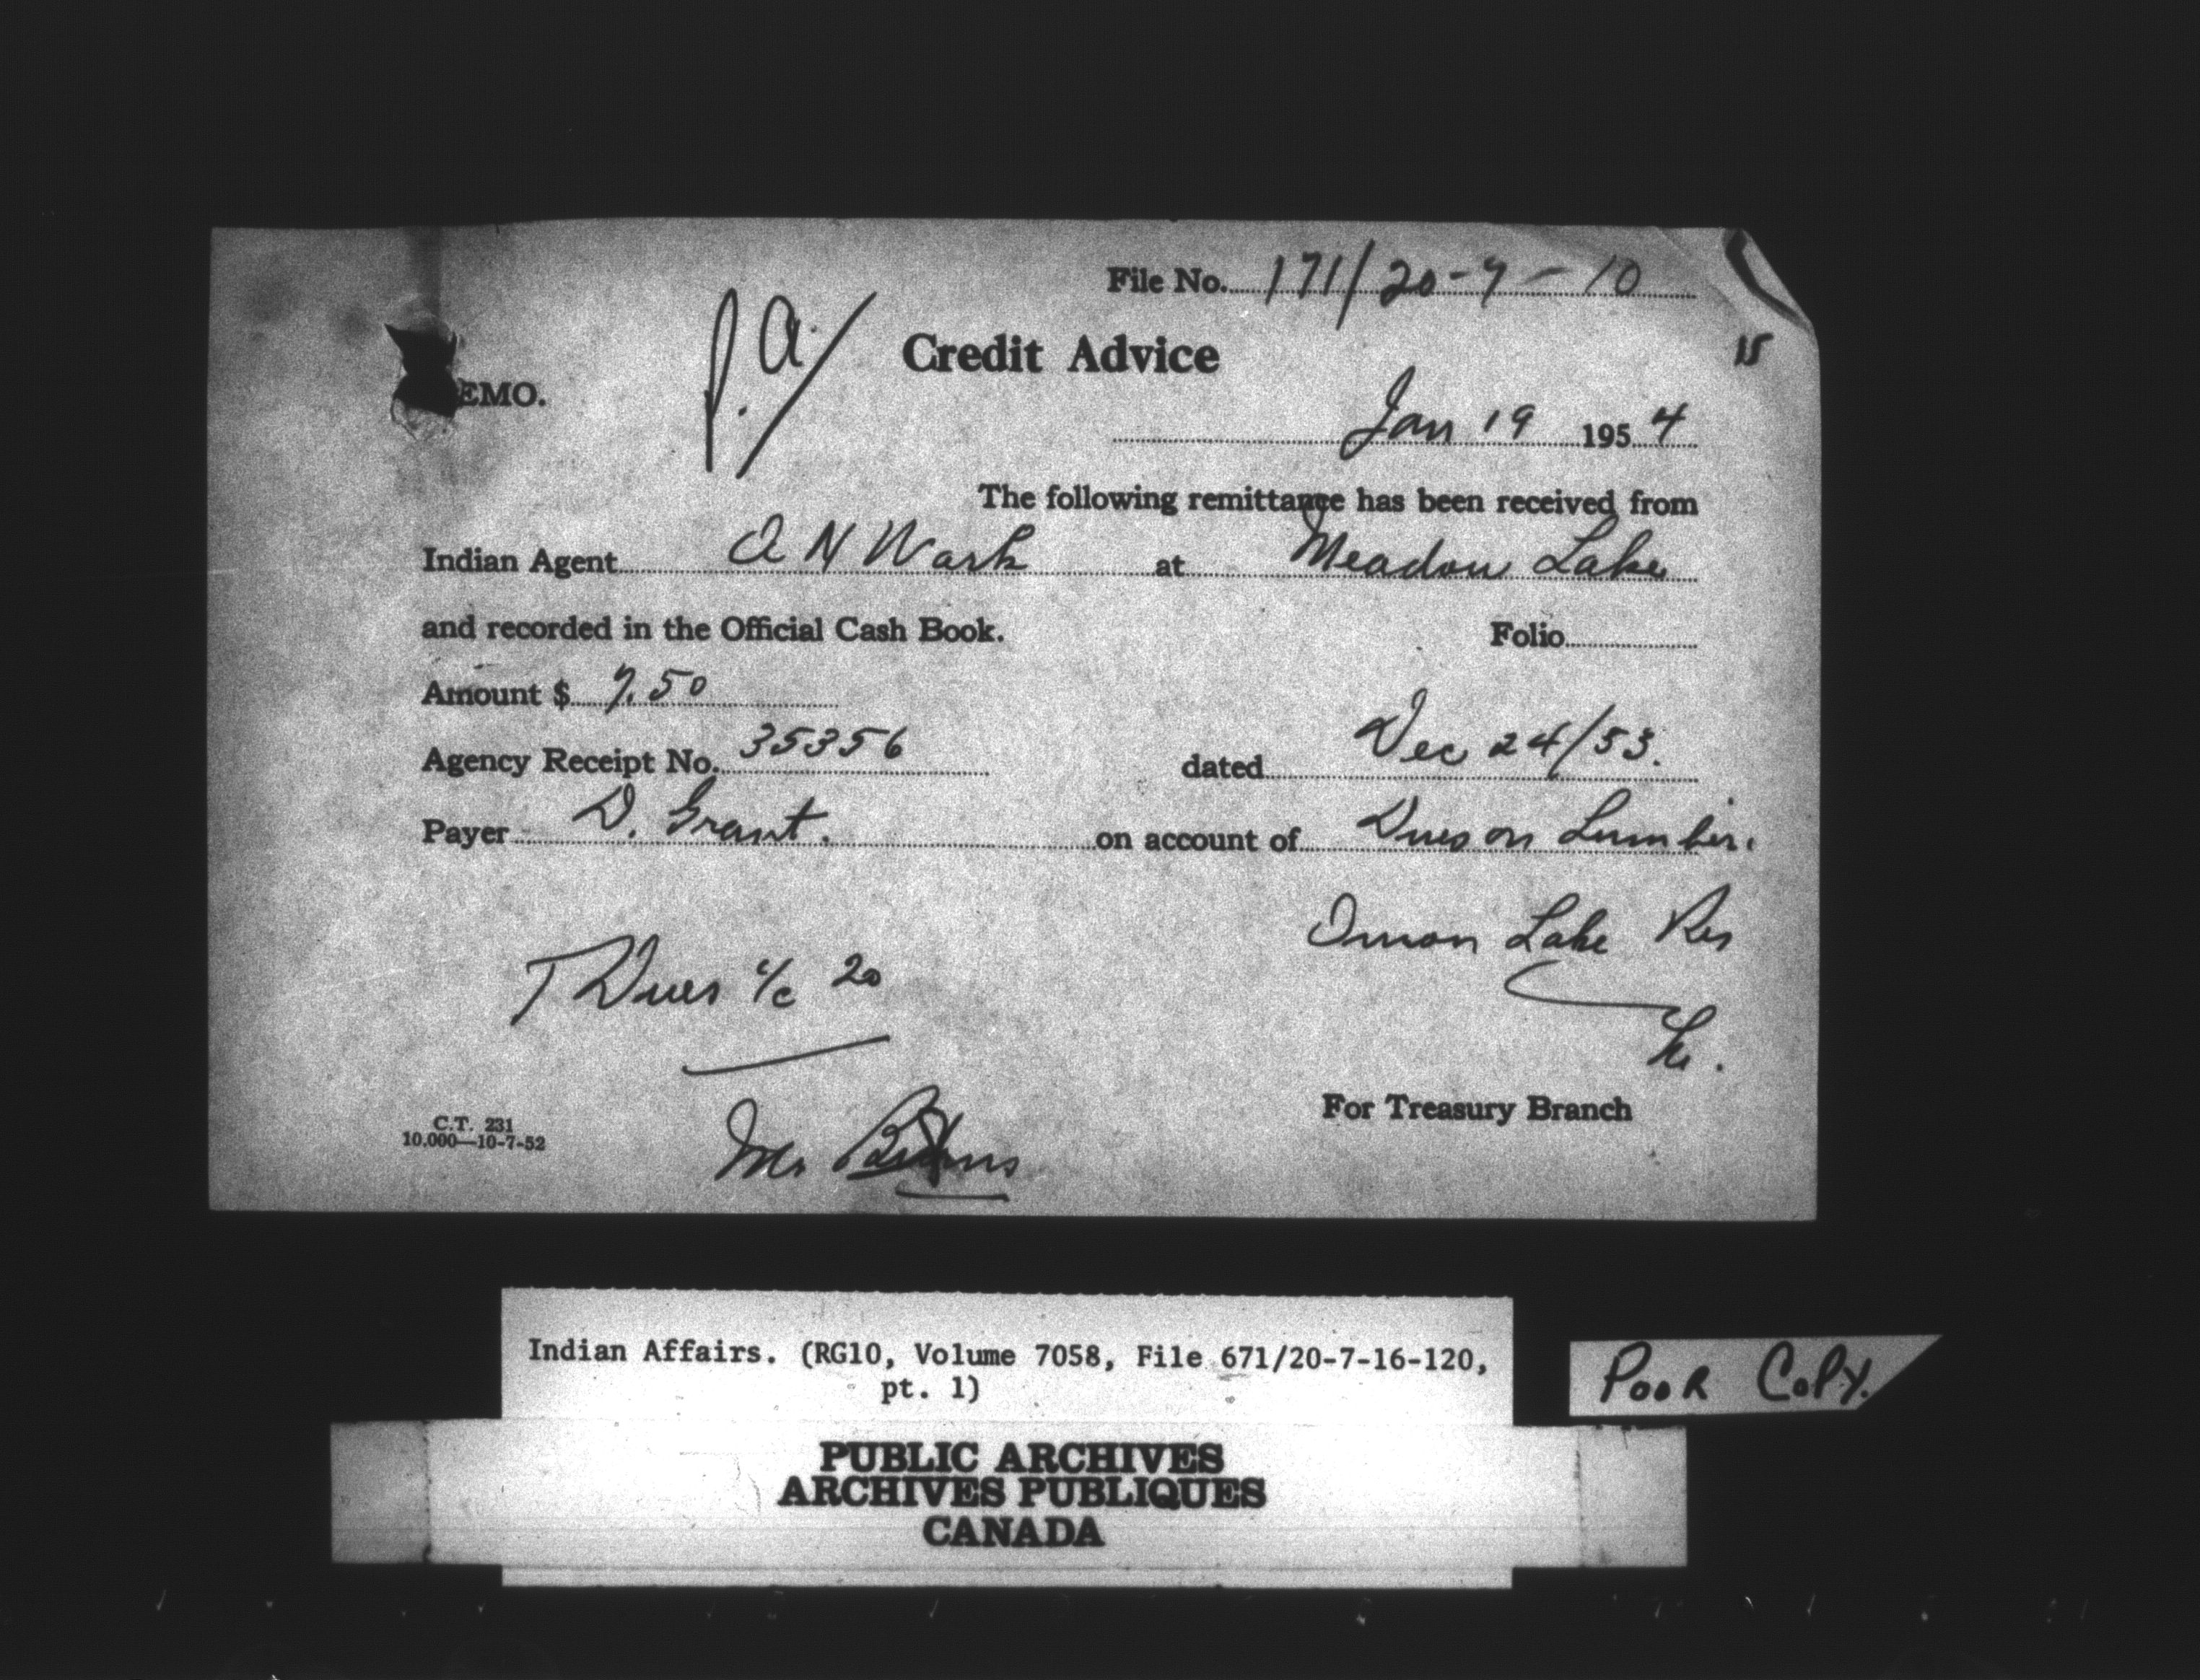 File No. 171/20-7-10
P.A.
Credit Advice
15
EMO.
Jan 19 1954
The following remittance has been received from
Indian Agent O N Wark at Meadow Lake
and recorded in the Official Cash Book. Folio
Amount $ 7.50
Agency Receipt No. 35356 dated Dec 24/53.
Payer D. Grant. on account of Dues on Lumber.
Lake Res
T Dues a/c 20
For Treasury Branch
C.T. 231
10,000—10-7-52
Mr
Indian Affairs. (RG10, Volume 7058, File 671/20-7-16-120,
pt. 1)
POOR COPY.
PUBLIC ARCHIVES
ARCHIVES PUBLIQUES
CANADA